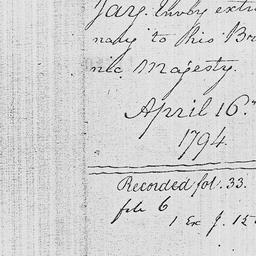 Jay. Envoy extra
nary to His Bri
nic Majesty.
April 16.
1794.
Recorded fol. 33.
file 6
1 Ex J.